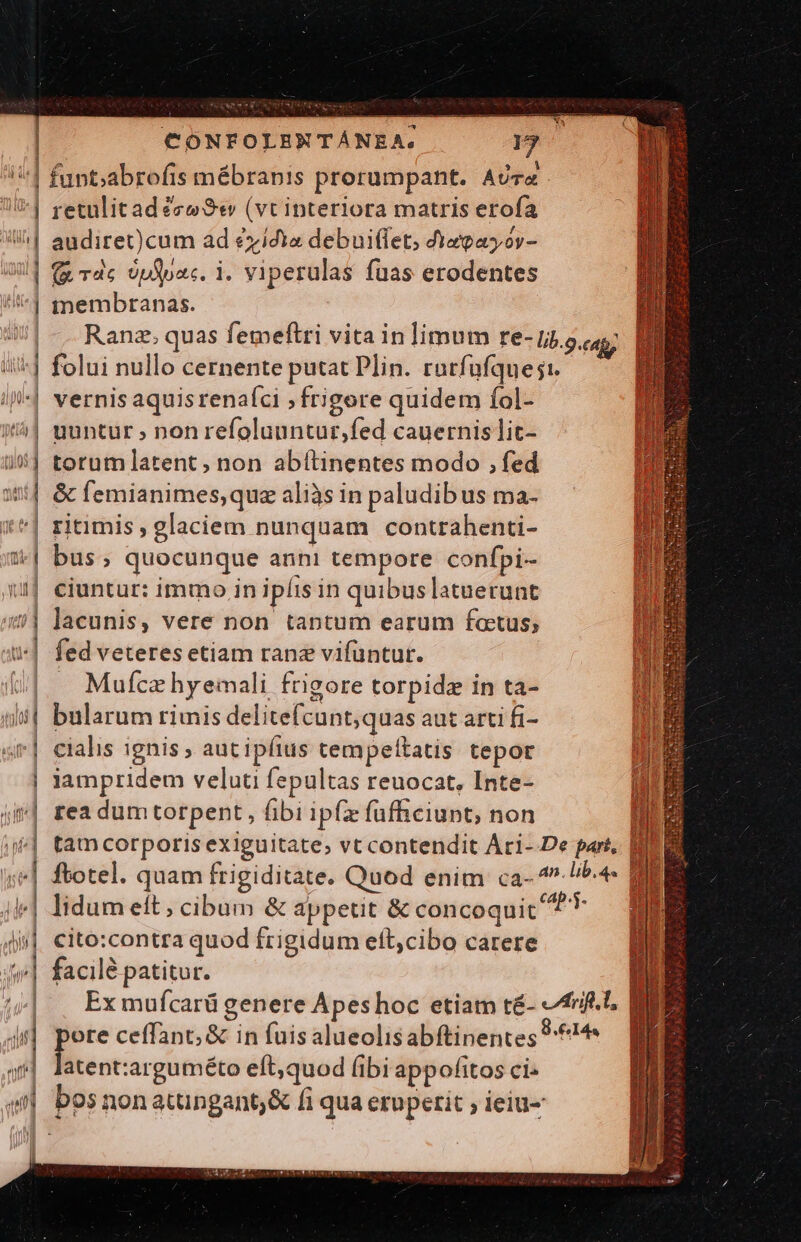 CONFOLENTÁNEA. 17
ſunt:abroſis mẽbranis prorumpant. Αὐτα
retulit ad ἔσωθεν (vt interiora matris eroſa
audiret) cum ad ἐχίδια debuiſſet, διαφαγόν-
τὰς ὑμένας. i. viperulas ſuas erodentes
membranas.
Ranæ, quas ſemeſtri vita in limum re- lib.9.cap.
ſolui nullo cernente putat Plin. rurſuſque 51.
vernis aquis renaſci, frigore quidem ſol-
uuntur, non reſoluuntur, ſed cauernis lit-
torum latent, non abſtinentes modo, ſed
& ſemianimes, quæ aliàs in paludibus ma-
ritimis, glaciem nunquam contrahenti-
bus, quocunque anni tempore conſpi-
ciuntur: immo in ipſis in quibus latuerunt
lacunis, vere non tantum earum fœtus,
ſed veteres etiam ranæ viſuntur.
Muſcæ hyemali frigore torpidæ in ta-
bularum rimis deliteſcunt, quas aut arti fi-
cialis ignis, aut ipſius tempeſtatis tepor
iampridem veluti ſepultas reuocat. Inte-
rea dum torpent, ſibi ipſæ ſufficiunt, non
tam corporis exiguitate, vt contendit Ari- De part.
ſtotel. quam frigiditate. Quod enim ca- an. lib.4.
lidum eſt, cibum & appetit & concoquit cap.5.
cito: contra quod frigidum eſt, cibo carere
facilè patitur.
Ex muſcarũ genere Apes hoc etiam tẽ- Ariſt.l.
pore ceſſant, & in ſuis alueolis abſtinentes 8.c.14.
latent: argumẽto eſt, quod ſibi appoſitos ci-
bos non attingant, & ſi qua eruperit, ieiu-